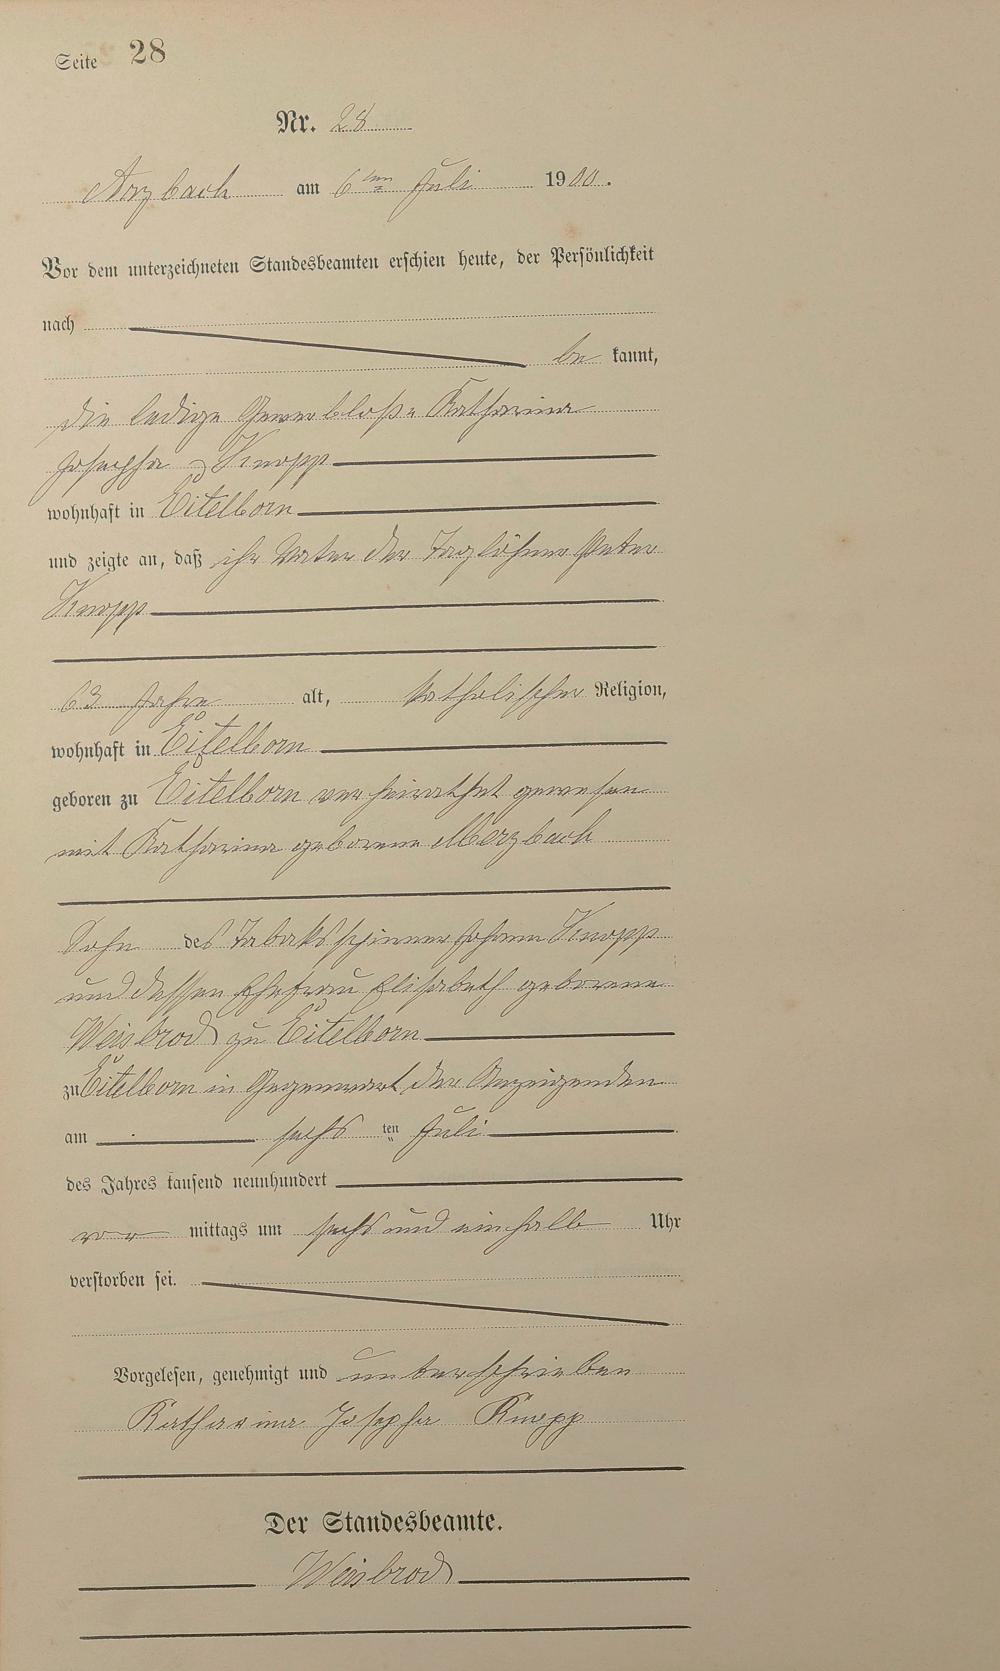 Seite 28
Nr. 28
Arzbach am 6ten Juli 1900.
Vor dem unterzeichneten Standesbeamten erschien heute, der Persönlichkeit
nach
be kannt,
die ledige Gewerblose Katharina
Josepha Knopp
wohnhaft in Eitelborn
und zeigte an, daß ihr Vater der Taglöhner Peter
Knopp
63 Jahre alt, katholischer Religion,
wohnhaft in Eitelborn
geboren zu Eitelborn verheirathet gewesen
mit Katharina geborene Merzbach
Sohn des Tabaksspinner Johann Knopp
und dessen Ehefrau Elisabeth geborene
Weisbrod zu Eitelborn
zu Eitelborn in Gegenwart der Anzeigenden
am sechs ten Juli
des Jahres tausend neunhundert
vor mittags um sechs und einhalb Uhr
verstorben sei.
Vorgelesen, genehmigt und unterschrieben
Katharina Josepha Knopp
Der Standesbeamte.
Weisbrod